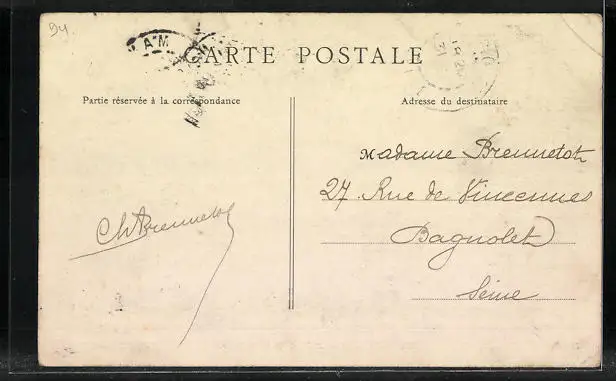 94
A M
CARTE POSTALE
Partie réservée à la correspondance
Adresse du destinataire
Madame Brennetot
27 Rue de Vincennes
Bagnolet
Seine
Ch Brennetot